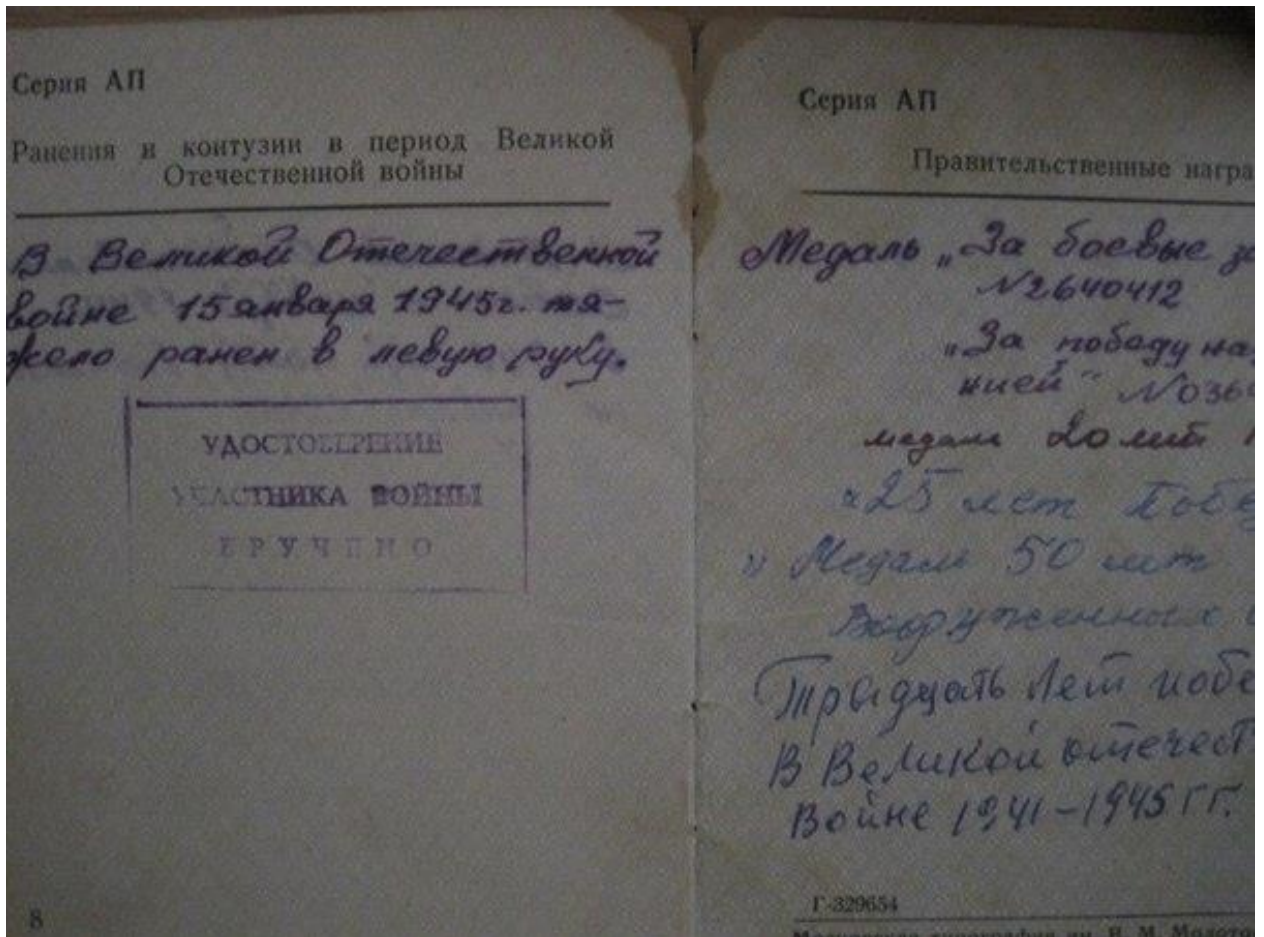 Серия АП
Ранения и контузии в период Великой
Отечественной войны
В Великой Отечественной
войне 15 января 1945г. тя-
жело ранен в левую руку.
УДОСТОВЕРЕНИЕ
УЧАСТНИКА ВОЙНЫ
ВРУЧЕНО
8
Серия АП
Правительственные награ
Медаль „За боевые за
№2640412
„За победу на
нией" №036
медаль 20 лет
"25 лет Побе
" Медаль 50 лет
Вооруженных
Тридцать лет побе
В Великой отечест
Войне 1941-1945 гг.
Г-329654
Московская типография им. В. М. Молото